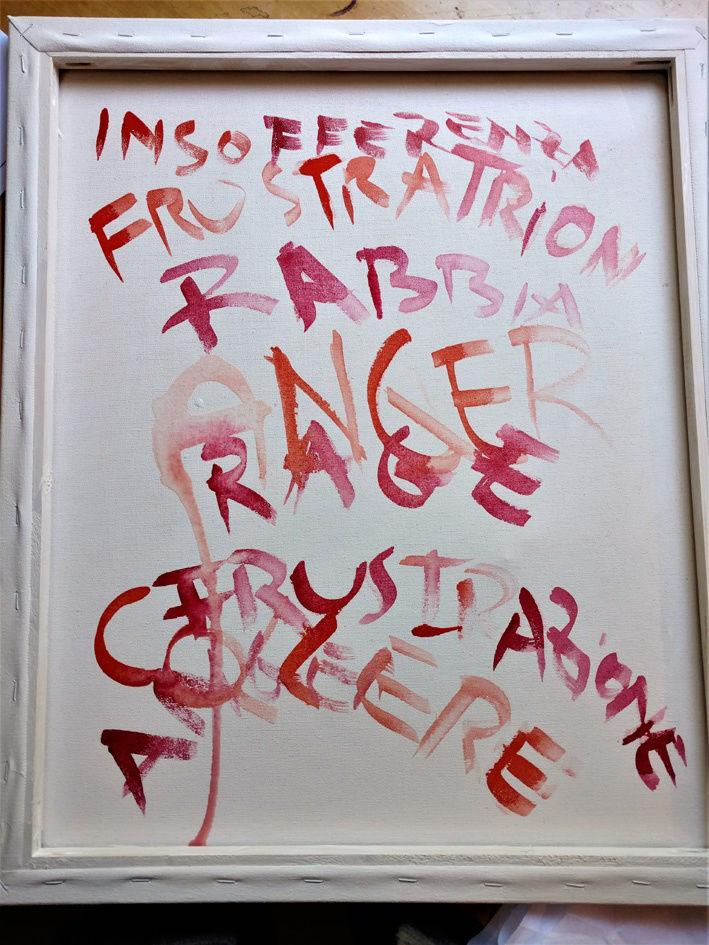 INSOFFERENZA
FRUSTRATRION
RABBIA
ANGER
RAGE
FRUSTRAZIONE
COLÈRE